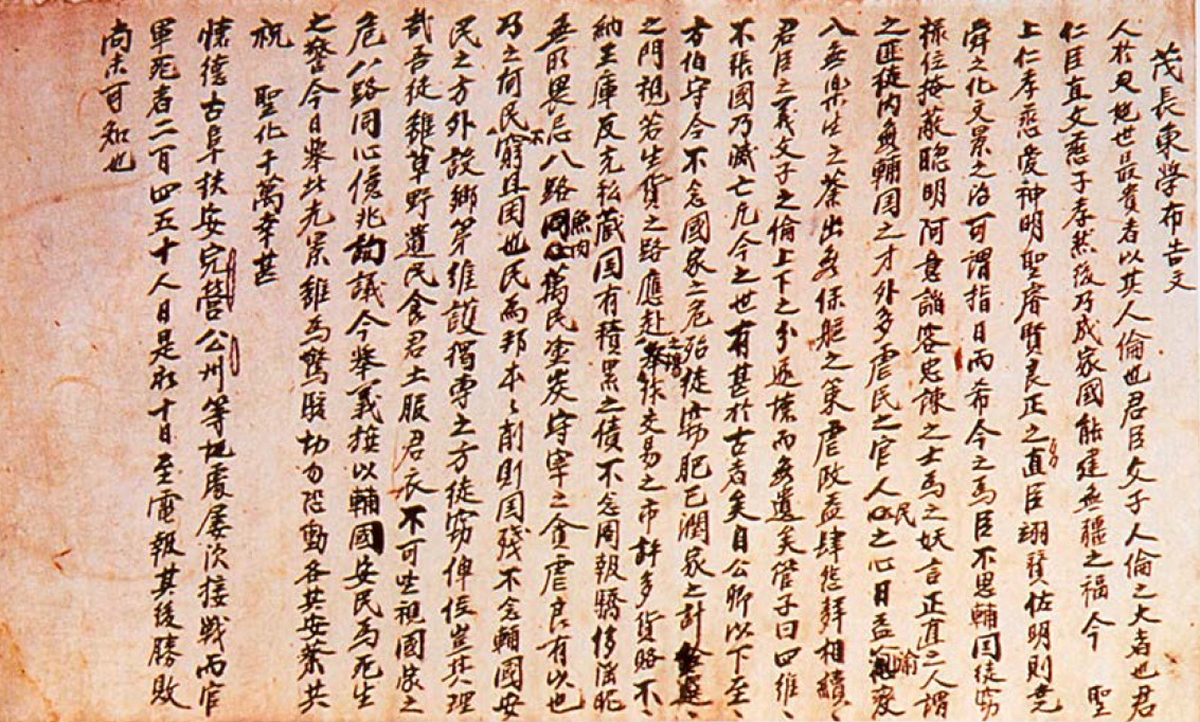 茂長東学布告文
人於世最貴者以其人倫也君臣父子人倫之大者也君
仁臣直父慈子孝然後乃成家國能建無疆之福今 聖
上仁孝慈愛神明聖睿賢良正之直臣翊贊佐明則堯
舜之化文景之治可謂指日而希今之爲臣不思輔囯徒窃
祿位掩蔽聡明阿意謟容忠諫之士爲之妖言正直之人謂
之匪徒內無輔囯之才外多虐民之官人民之心日益渝変
入無楽生之業出無保軀之策虐政益肆怨聲相續
君臣之義父子之倫上下之分逐壞而無遺矣管子曰四維
不張國乃滅亡凢今之世有甚於古者矣自公卿以下至
方伯守令不念國家之危殆徒窃肥己潤家之計
之門視若生貨之路應赴之場作交易之市許多貨賂不
納王庫反充私蔵囯有積累之債不念囯報驕侈淫昵
無所畏忌八路魚肉萬民塗炭守宰之貪虐良有以也
乃之何民不窮且困也民爲邦本々削則囯殘不念輔國安
民之方外設鄕第維護獨專之方徒窃俸位豈其理
哉吾徒雖草野遺民食君土服君衣不可坐視國家之
危八路同心億兆詢議今擧義旗以輔國安民爲死生
之誓今日擧此光景雖爲驚駭切勿恐動各其安業共
祝 聖化千萬幸甚
懷德古阜扶安完營公州等地處屢次接戰而官
軍死者二百四五十人日是初十日至電報其後勝敗
尚未可知也